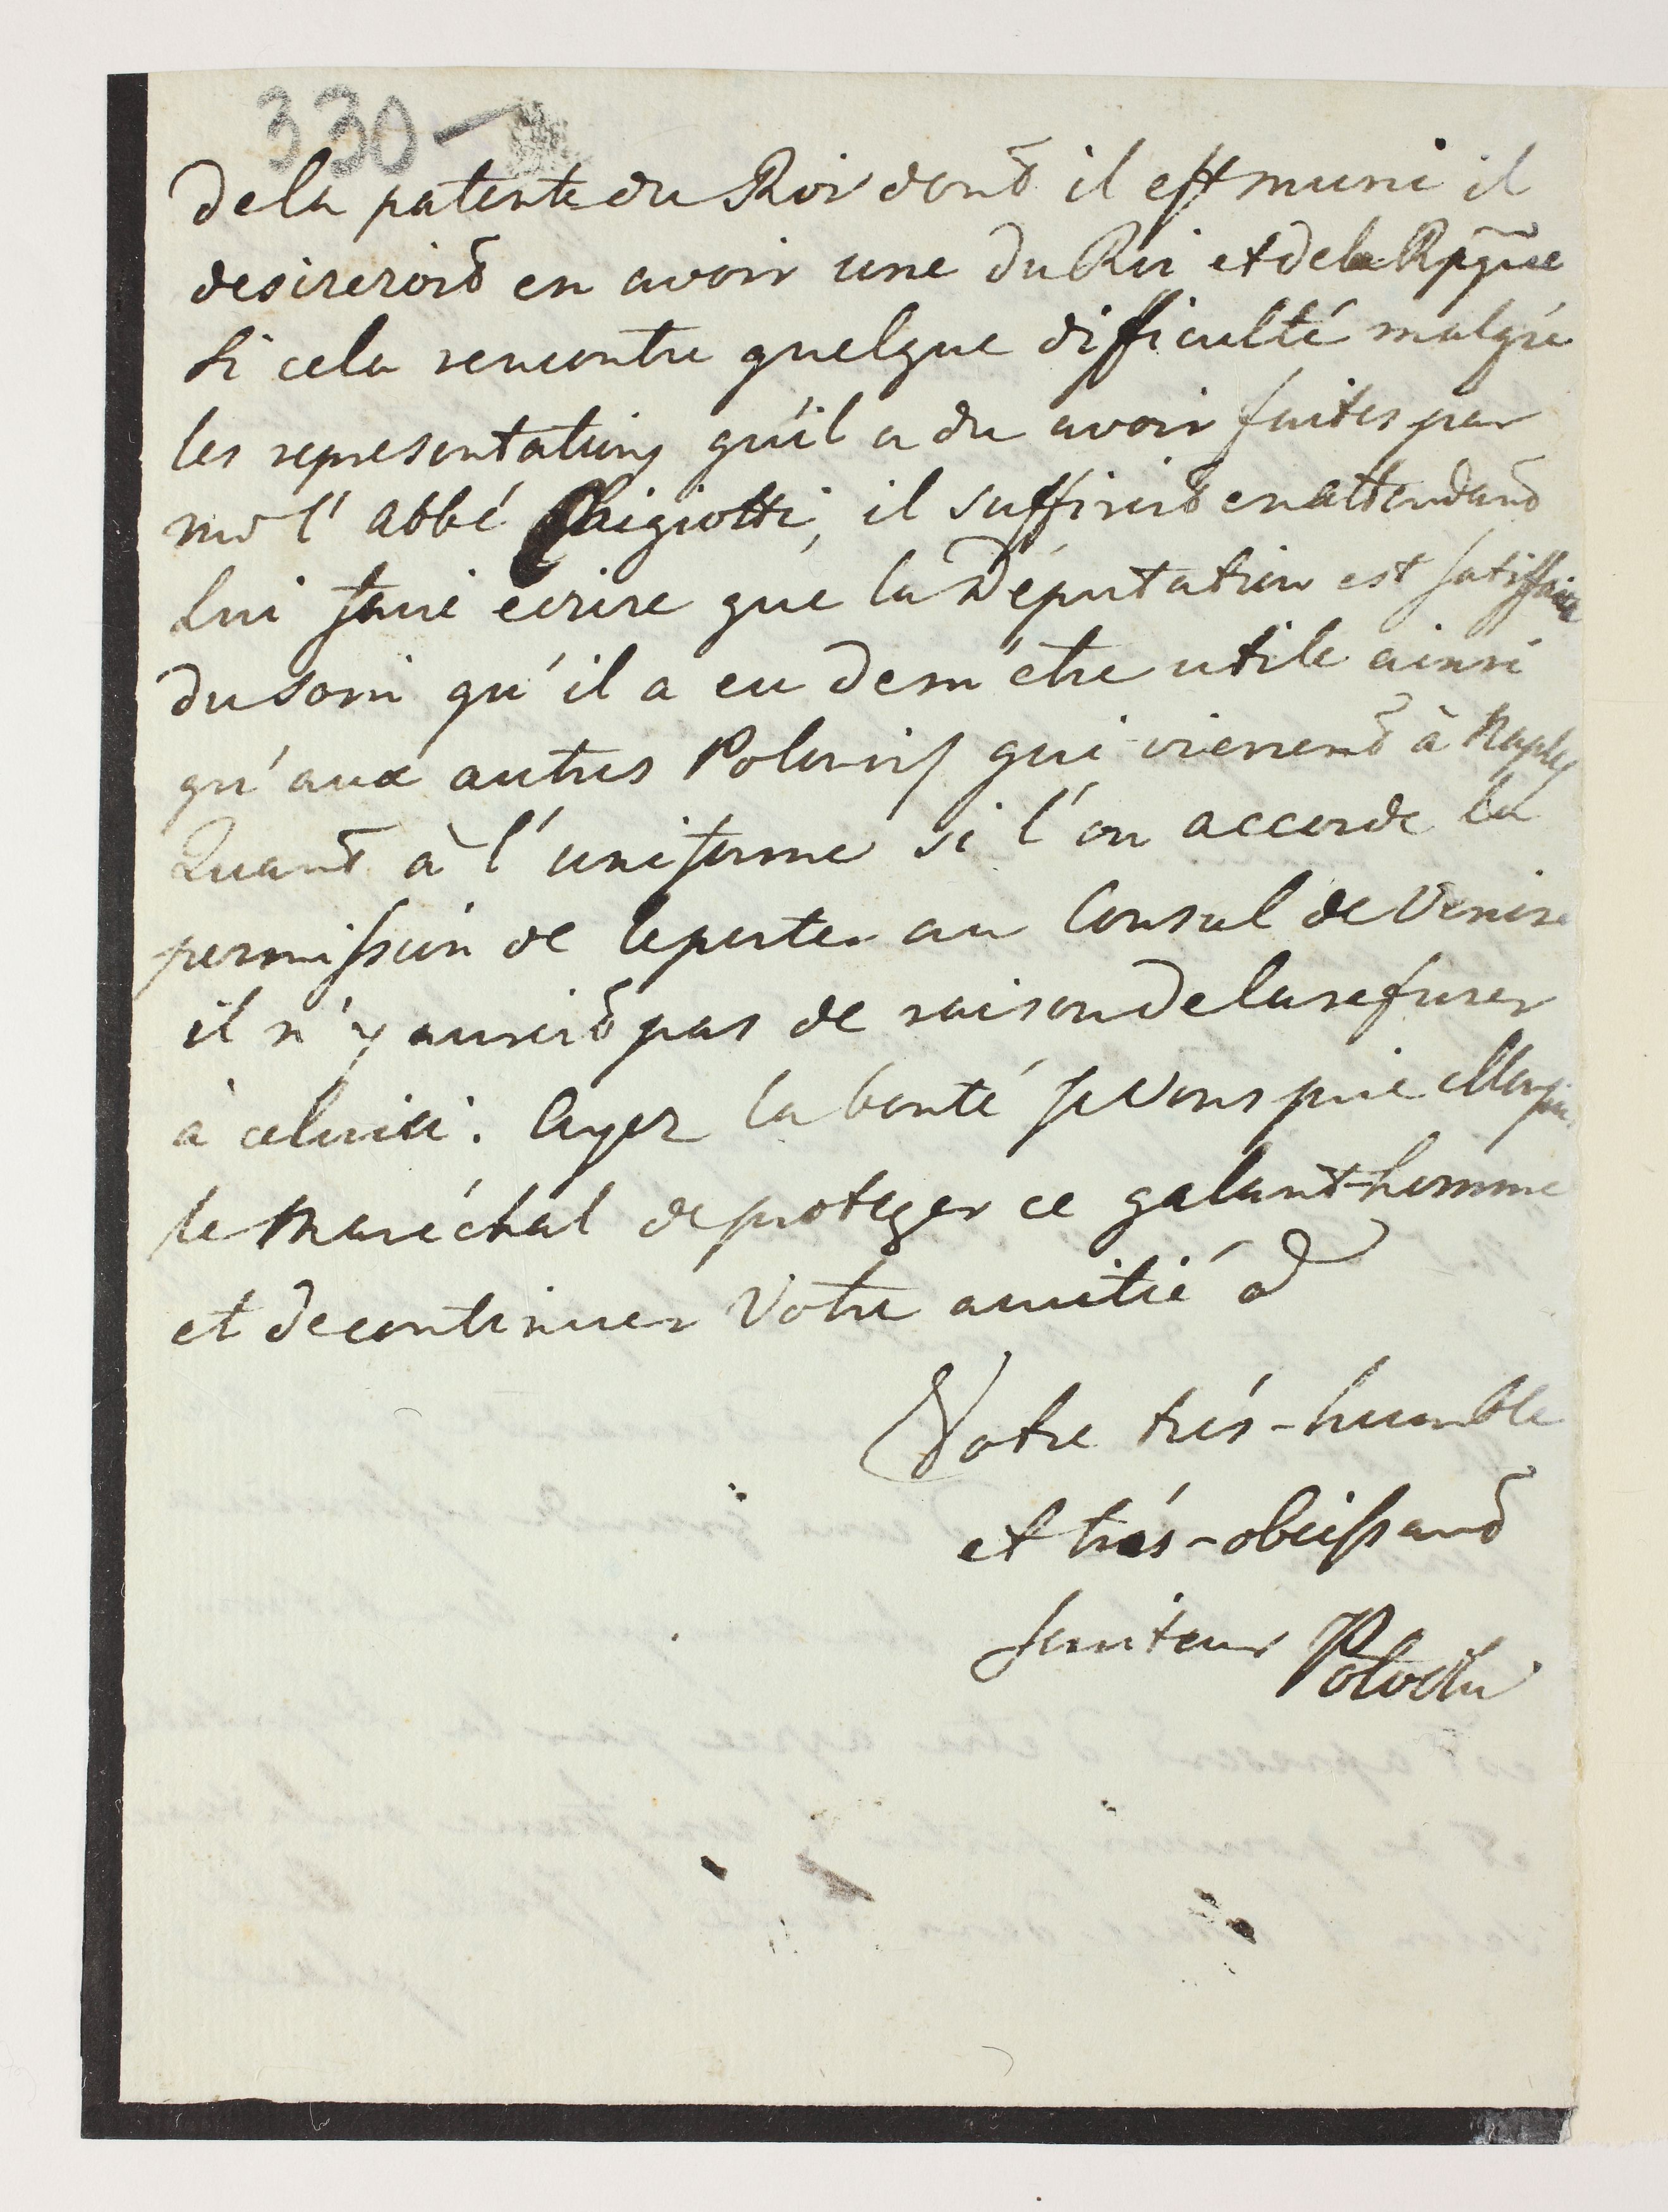 330-
de la patente du Roi dont il est muni il
desireroit en avoir une du Roi et de la Rpque
si cela rencontre quelque difficulté malgré
les representations qu'il a du avoir faites par
mr l'abbé Ghigiotti, il suffiroit en attendant
lui faire ecrire que la Députation est satisfaite
du soin qu'il a eu de m'etre utile ainsi
qu'aux autres Polonois qui viennent à Naples
Quant à l'uniforme si l'on accorde la
permission de le porter au Consul de Venise
il n'y auroit pas de raison de la refuser
à celui ici. Ayez la bonté je vous prie Monsieur
le Maréchal de proteger ce galant-homme
et de continuer Votre amitié à
Votre trés-humble
et trés-obeissant
serviteur Potocki